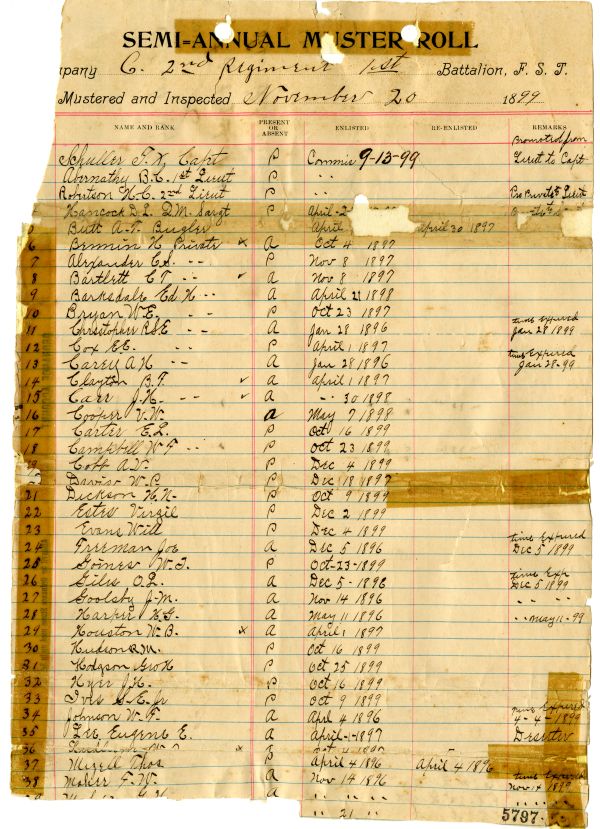 SEMI-ANNUAL MUSTER ROLL
mpany C. 2nd Regiment 1st Battalion, F. S. T.
Mustered and Inspected November 20 1899
NAME AND RANK PRESENT OR ABSENT ENLISTED RE-ENLISTED REMARKS
Promoted from
Schuller T. N, Capt P Commis 9-13-99 Lieut to Capt
Abernathy B. C. 1st Lieut P " "
Robertson H. C. 2nd Lieut P " " Pro Private to Lieut
Hancock D. L. Q.M. Sargt P April
Butt A. V. Bugler April April 30 1897
6 Private x A Oct 4 1897
7 Alexander C. S. " " P Nov 8 1897
8 Bartlett C T " " ✓ A Nov 8 1897
9 Barksdale Ed H " " A April 21 1898
10 Bryan W E, " " P Oct 23 1897
11 Christopher R S E " " A Jan 28 1896 time expired Jan 28 1899
12 Cox E. E. " " P April 1 1897
13 Carey A H " " A Jan 28 1896 time Expired Jan 28-99
14 Clayton B. F. ✓ A April 1 1897
15 Carr J. H. " " ✓ A " " 30 1898
16 Cooper V. W. A May 7 1898
17 Carter E. L. P Oct 16 1899
18 Campbell W F " " P Oct 23 1899
9 Cobb A. V. P Dec 4 1899
Davis W. P. P Dec 18 1897
21 Dickson H. N. P Oct 9 1899
22 Estes Virgil P Dec 2 1899
23 Evans Will P Dec 4 1899
24 Freeman Joe A Dec 5 1896 time Expired Dec 5 1899
25 Gomes W. J. P Oct-23-1899
26 Giles O. L. A Dec 5-1896 time Exp Dec 5 1899
27 Goolsby J. M. A Nov 14 1896 " " "
28 Harper H. G. A May 11 1896 " May 11-99
29 Houston W. B. x A April 1 1897
30 Hudson R. M. P Oct 16 1899
31 Hodgson Geo H P Oct 25 1899
32 Hyer J. H. P Oct 16 1899
33 Ives S. E. Jr P Oct 9 1899
34 Johnson W. F. A Aprl 4 1896 time Expired 4-4-1899
35 Lee, Eugene E. A April-1-1897 Deserter
36 x
37 Mizell Thos P April 4 1896 April 4 1896
38 Maher F. W. A Nov 14 1896 time Expired Nov 14 1899
" " " "
" 21 " 5797